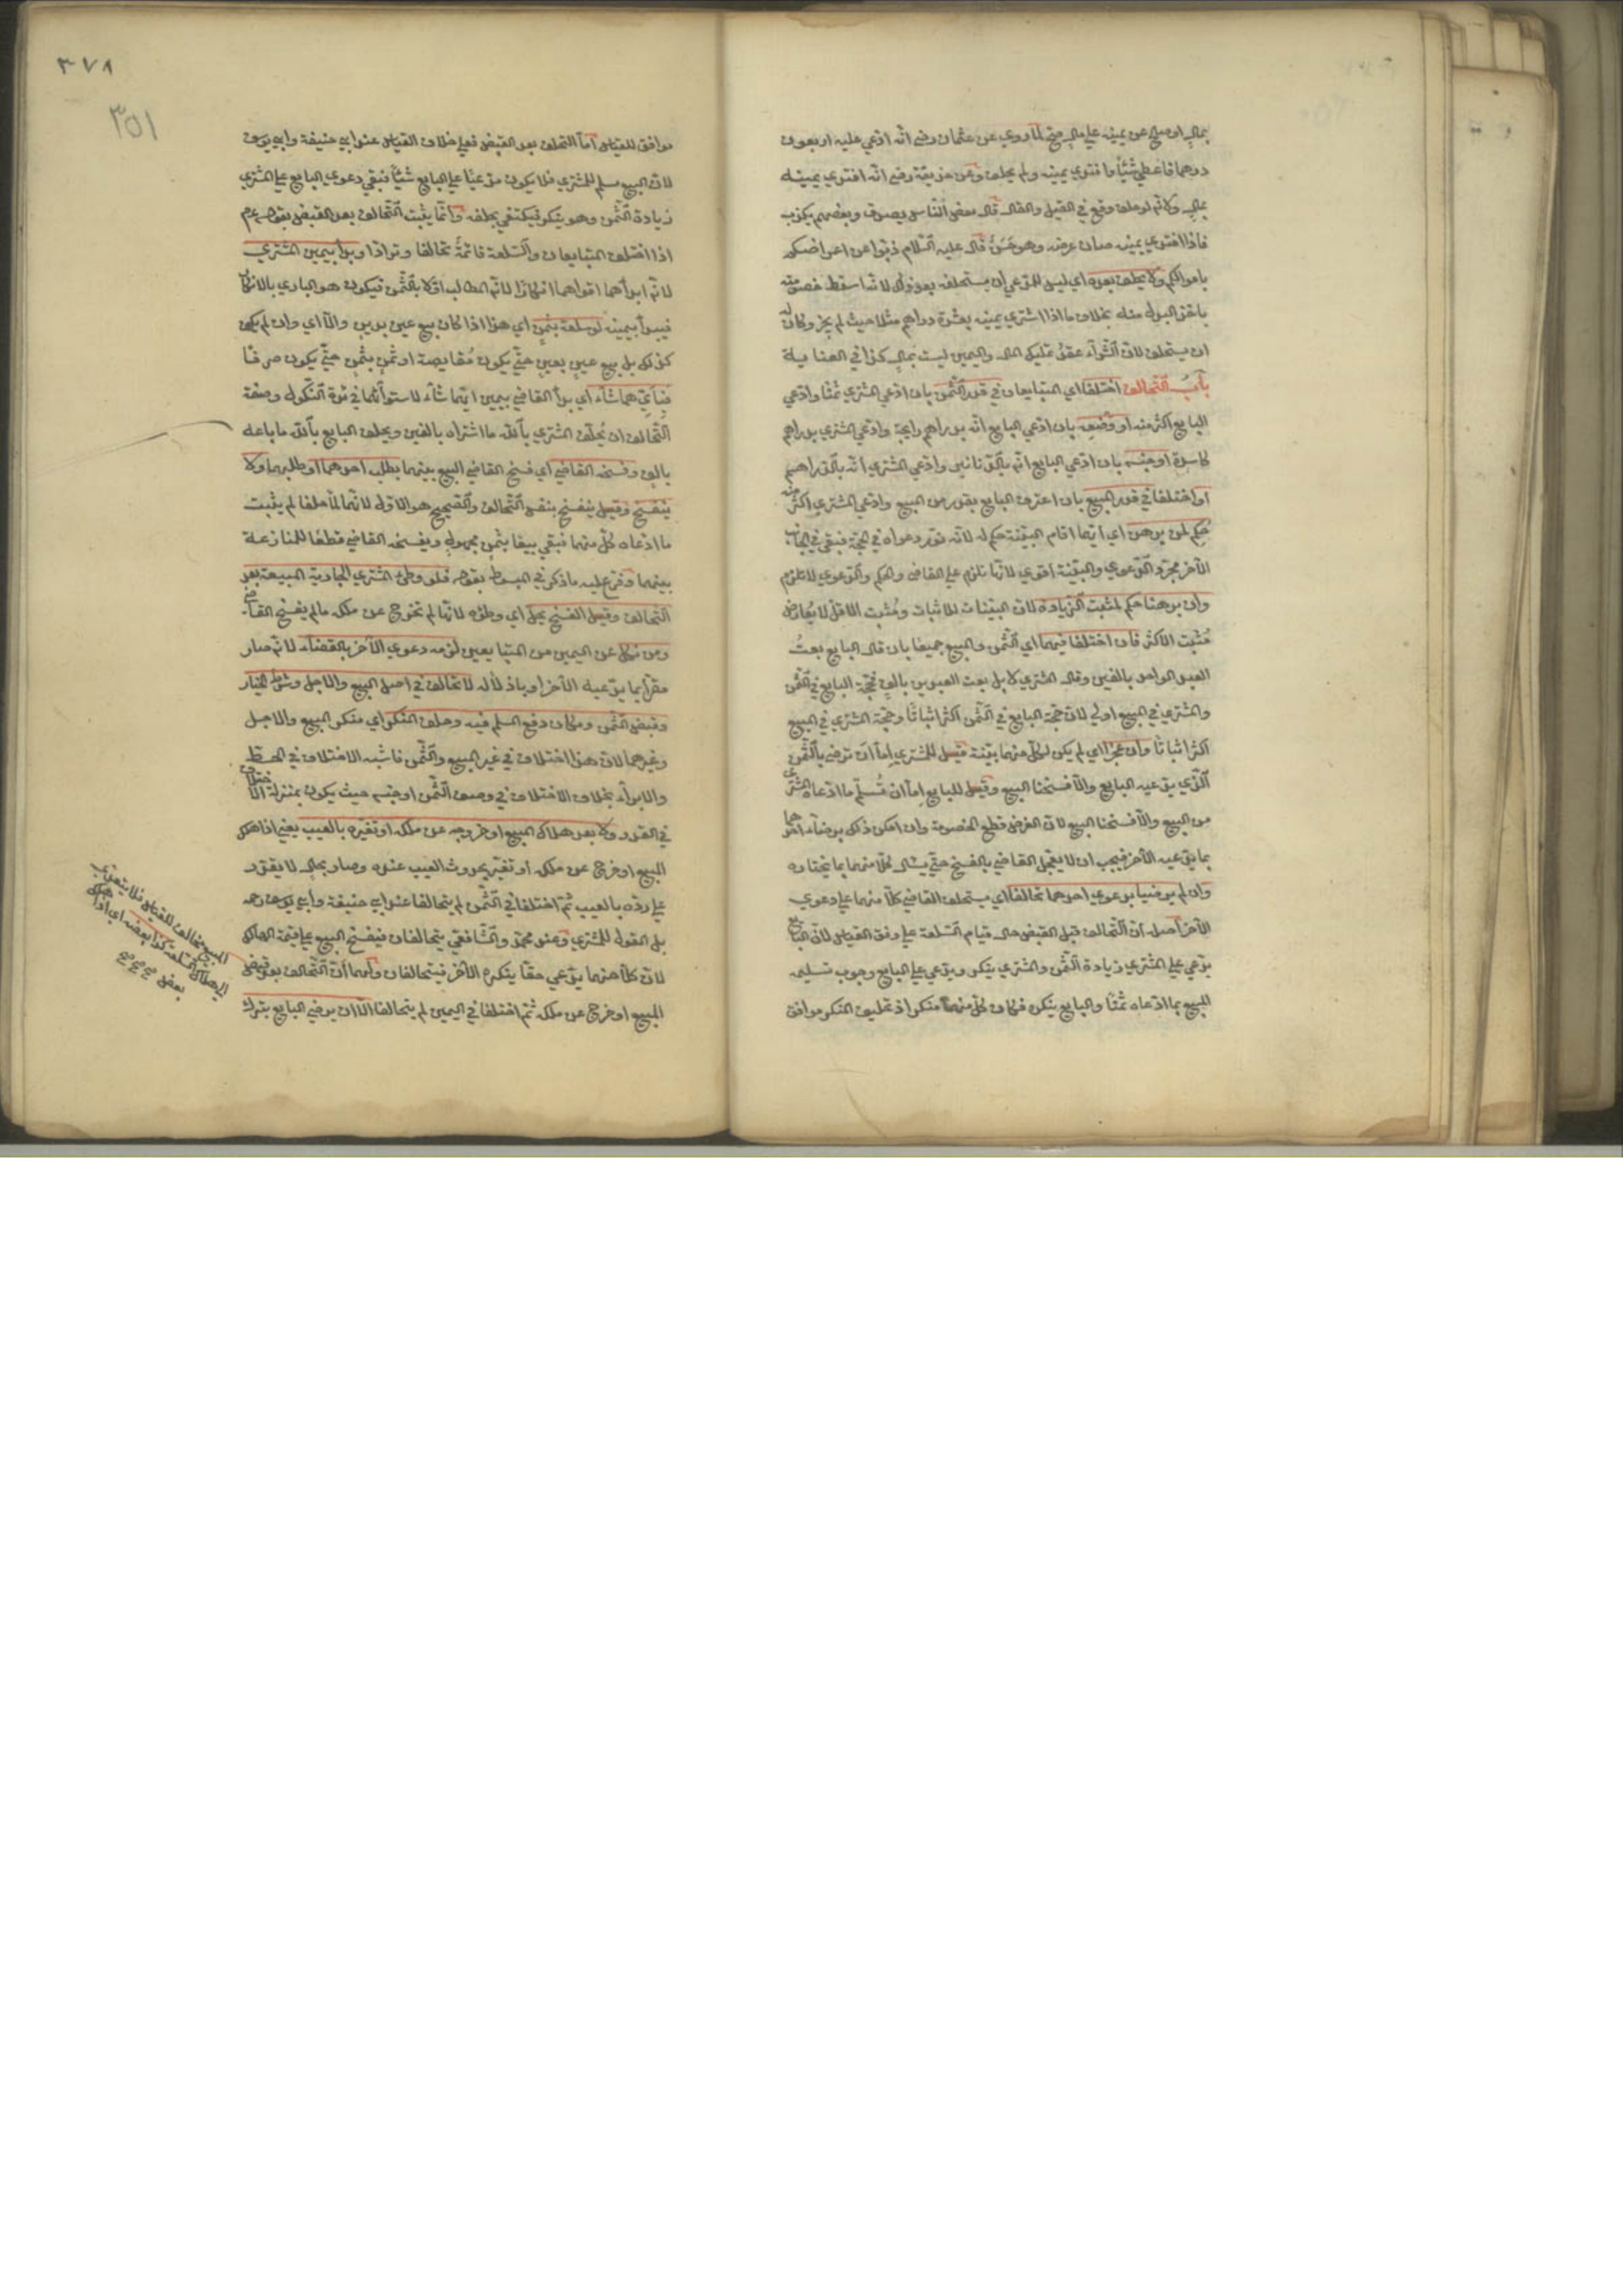 بمال او صلح عن يمينه على مال صح لما روي عن عثمان رضى انه ادعي عليه اربعون
درهما فاعطي شيئا وافتدي يمينه ولم يحلف وعن حذيفة رضى انه افتدي يمينه
بمال ولانه لو حلف وقع في القيل والقال قال بعض الناس يصدق وبعضهم يكذب
فاذا افتدي بيمينه صان عرضه وهو حسن قال عليه السلام ذبوا عن اعراضكم
باموالكم ولا يحلف بعده اي ليس للمدعي ان يستحلفه بعد ذلك لانه اسقط خصومته
باخذ البدل منه بخلاف ما اذا اشتري يمينه بعشرة دراهم مثلا حيث لم يجز وكان له
ان يستحلف لان الشراء عقد تمليك المال واليمين ليست بمال كذا في العناية
باب التحالف اختلفا اي المتبايعان في قدر الثمن بان ادعي المشتري ثمنا وادعي
البايع اكثر منه او وصفه بان ادعي البايع انه بدراهم رايجة وادعي المشتري بدراهم
كاسدة او جنسه بان ادعي البايع انه بالدنانير وادعي المشتري انه بالدراهم
او اختلفا في قدر المبيع بان اعترف البايع بقدر من المبيع وادعي المشتري اكثر منه
حكم لمن برهن اي ايهما اقام البينة حكم له لانه نور دعواه في الحجة فبقي في الجانب
الآخر مجرد الدعوي والبينة اقوي لانها تلزم على القاضي والحكم والدعوي لا تلزم
وان برهنا حكم لمثبت الزيادة لان البينات للاثبات ومثبت الاقل لا يعارض
مثبت الاكثر فان اختلفا فيهما اي الثمن والمبيع جميعا بان قال البايع بعت
العبد الواحد بالفين وقال المشتري لا بل بعت العبدين بالف فحجة البايع في الثمن
والمشتري في المبيع اولي لان حجة البايع في الثمن اكثر اثباتا وحجة المشتري في المبيع
اكثر اثباتا وان عجزا اي لم يكن لكل منهما بينة قيل للمشتري اما ان ترضى بالثمن
الذي يدعيه البايع والا فسخنا البيع وقيل للبايع اما ان تسلم ما ادعاه المشتري
من المبيع والا فسخنا البيع لان الغرض قطع الخصومة وان امكن ذلك برضاء احدهما
بما يدعيه الآخر فيجب ان لا يعجل القاضي بالفسخ حتى يسال كلا منهما بما يختاره
وان لم يرضيا بدعوي احدهما تحالفا اي يستحلف القاضي كلا منهما على دعوي
الآخر اصله ان التحالف قبل القبض حال قيام السلعة على وفق القياس لان البايع
يدعي على المشتري زيادة الثمن والمشتري ينكر ويدعي على البايع وجوب تسليم
المبيع بما ادعاه ثمنا والبايع ينكر فكان كل منهما منكرا اذ تحليف المنكر موافق
٣٧٨
٣٥١
موافق للقياس اما التحالف بعد القبض فعلى خلاف القياس عند ابي حنيفة وابي يوسف
لان المبيع سلم للمشتري فلا يكون مدعيا على البايع شيئا فبقي دعوي البايع على المشتري
زيادة الثمن وهو ينكر فيكتفي بحلفه وانما يثبت التحالف بعد القبض بقوله عم
اذا اختلف المتبايعان والسلعة قائمة تحالفا وترادا وبدأ بيمين المشتري
لانه ابدأهما اقواهما انكارا لانه المطالب اولا بالثمن فيكون هو البادي بالانكار
فيبدأ بيمينه لو سلعة بثمن اي هذا اذا كان بيع عين بدين والا اي وان لم يكن
كذلك بل بيع عين بعين حتى يكون مقايضة او ثمن بثمن حتى يكون صرفا
فبايهما شاء اي بدأ القاضي بيمين ايهما شاء لاستوائهما في ثمرة النكول وصفة
التحالف ان يحلف المشتري بالله ما اشتراه بالفين ويحلف البايع بالله ما باعه
بالف وفسخه القاضي اي فسخ القاضي البيع بينهما بطلب احدهما او طلبهما ولا
ينفسخ وقيل ينفسخ بنفس التحالف والصحيح هو الاول لانهما لما حلفا لم يثبت
ما ادعاه كل منهما فبقي بيعا بثمن مجهول ويفسخه القاضي قطعا للمنازعة
بينهما وفرع عليه ما ذكر في المبسوط بقوله فلو وطئ المشتري الجارية المبيعة بعد
التحالف وقبل الفسخ يحل اي وطؤه لانها لم تخرج عن ملكه ما لم يفسخ القاضي
ومن نكل عن اليمين من المتبايعين لزمه دعوي الآخر بالقضاء لانه صار
مقرا بما يدعيه الآخر او باذلا له لا تحالف في اصل البيع والاجل وشرط الخيار
وقبض الثمن ومكان دفع المسلم فيه وحلف المنكر اي منكر البيع والاجل
وغيرهما لان هذا اختلاف في غير المبيع والثمن فاشبه الاختلاف في الحط
والابراء بخلاف الاختلاف في وصف الثمن او جنسه حيث يكون بمنزلة الاختلاف
في القدر ولا بعد هلاك المبيع او خروجه عن ملكه او تغيره بالعيب يعني اذا هلك
المبيع او خرج عن ملكه او تغير بحدوث العيب عنده وصار بحال لا يقدر
على رده بالعيب ثم اختلفا في الثمن لم يتحالفا عند ابي حنيفة وابي يوسف رحه
بل القول للمشتري وعند محمد والشافعي يتحالفان فيفسخ البيع على قيمة الهالك
لان كلا منهما يدعي حقا ينكره الآخر فيتحالفان ولهما ان التحالف بعد قبض
المبيع او خرج عن ملكه ثم اختلفا في اليمين لم يتحالفا الا ان يرضى البايع بترك
المبيع مخالف للقياس فلا يتعدي
الى هلاك السلعة كذا بعضه اي اذا هلك
بعض